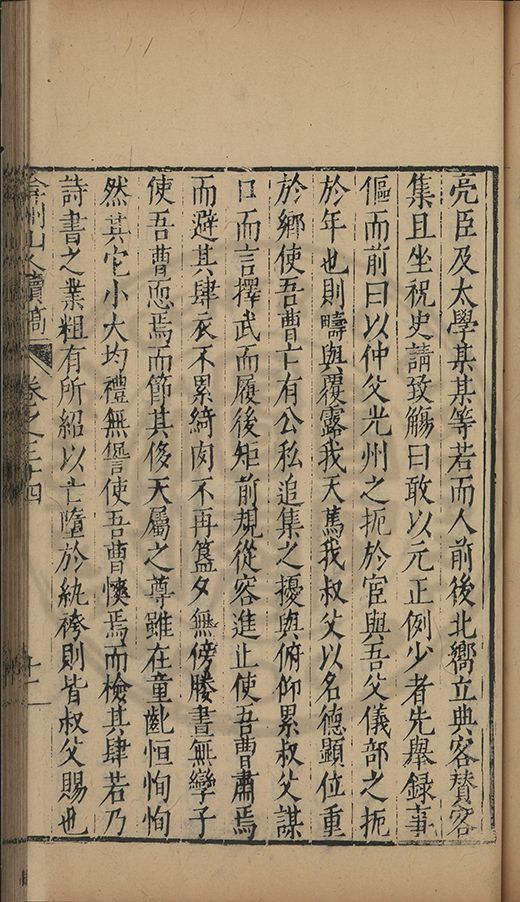 亮臣及太學某某等若而人前後北嚮立典客賛客
集且坐祝史請致觴曰敢以元正例少者先舉録事
傴而前曰以仲父光州之扼於宦與吾父儀部之扼
於年也則疇與覆露我天篤我叔父以名德顯位重
於鄉使吾曹亡有公私追集之擾與俯仰累叔父謀
口而言擇武而履後矩前規從容進止使吾曹肅焉
而避其肆衣不累綺肉不再簋夕無傍媵晝無孿子
使吾曹恧焉而節其侈天屬之尊雖在童齔恒恂恂
然其它小大均禮無諐使吾曹愯焉而檢其肆若乃
詩書之業粗有所紹以亡墮於紈袴則皆叔父賜也
弇州山人續稿 卷之三十四